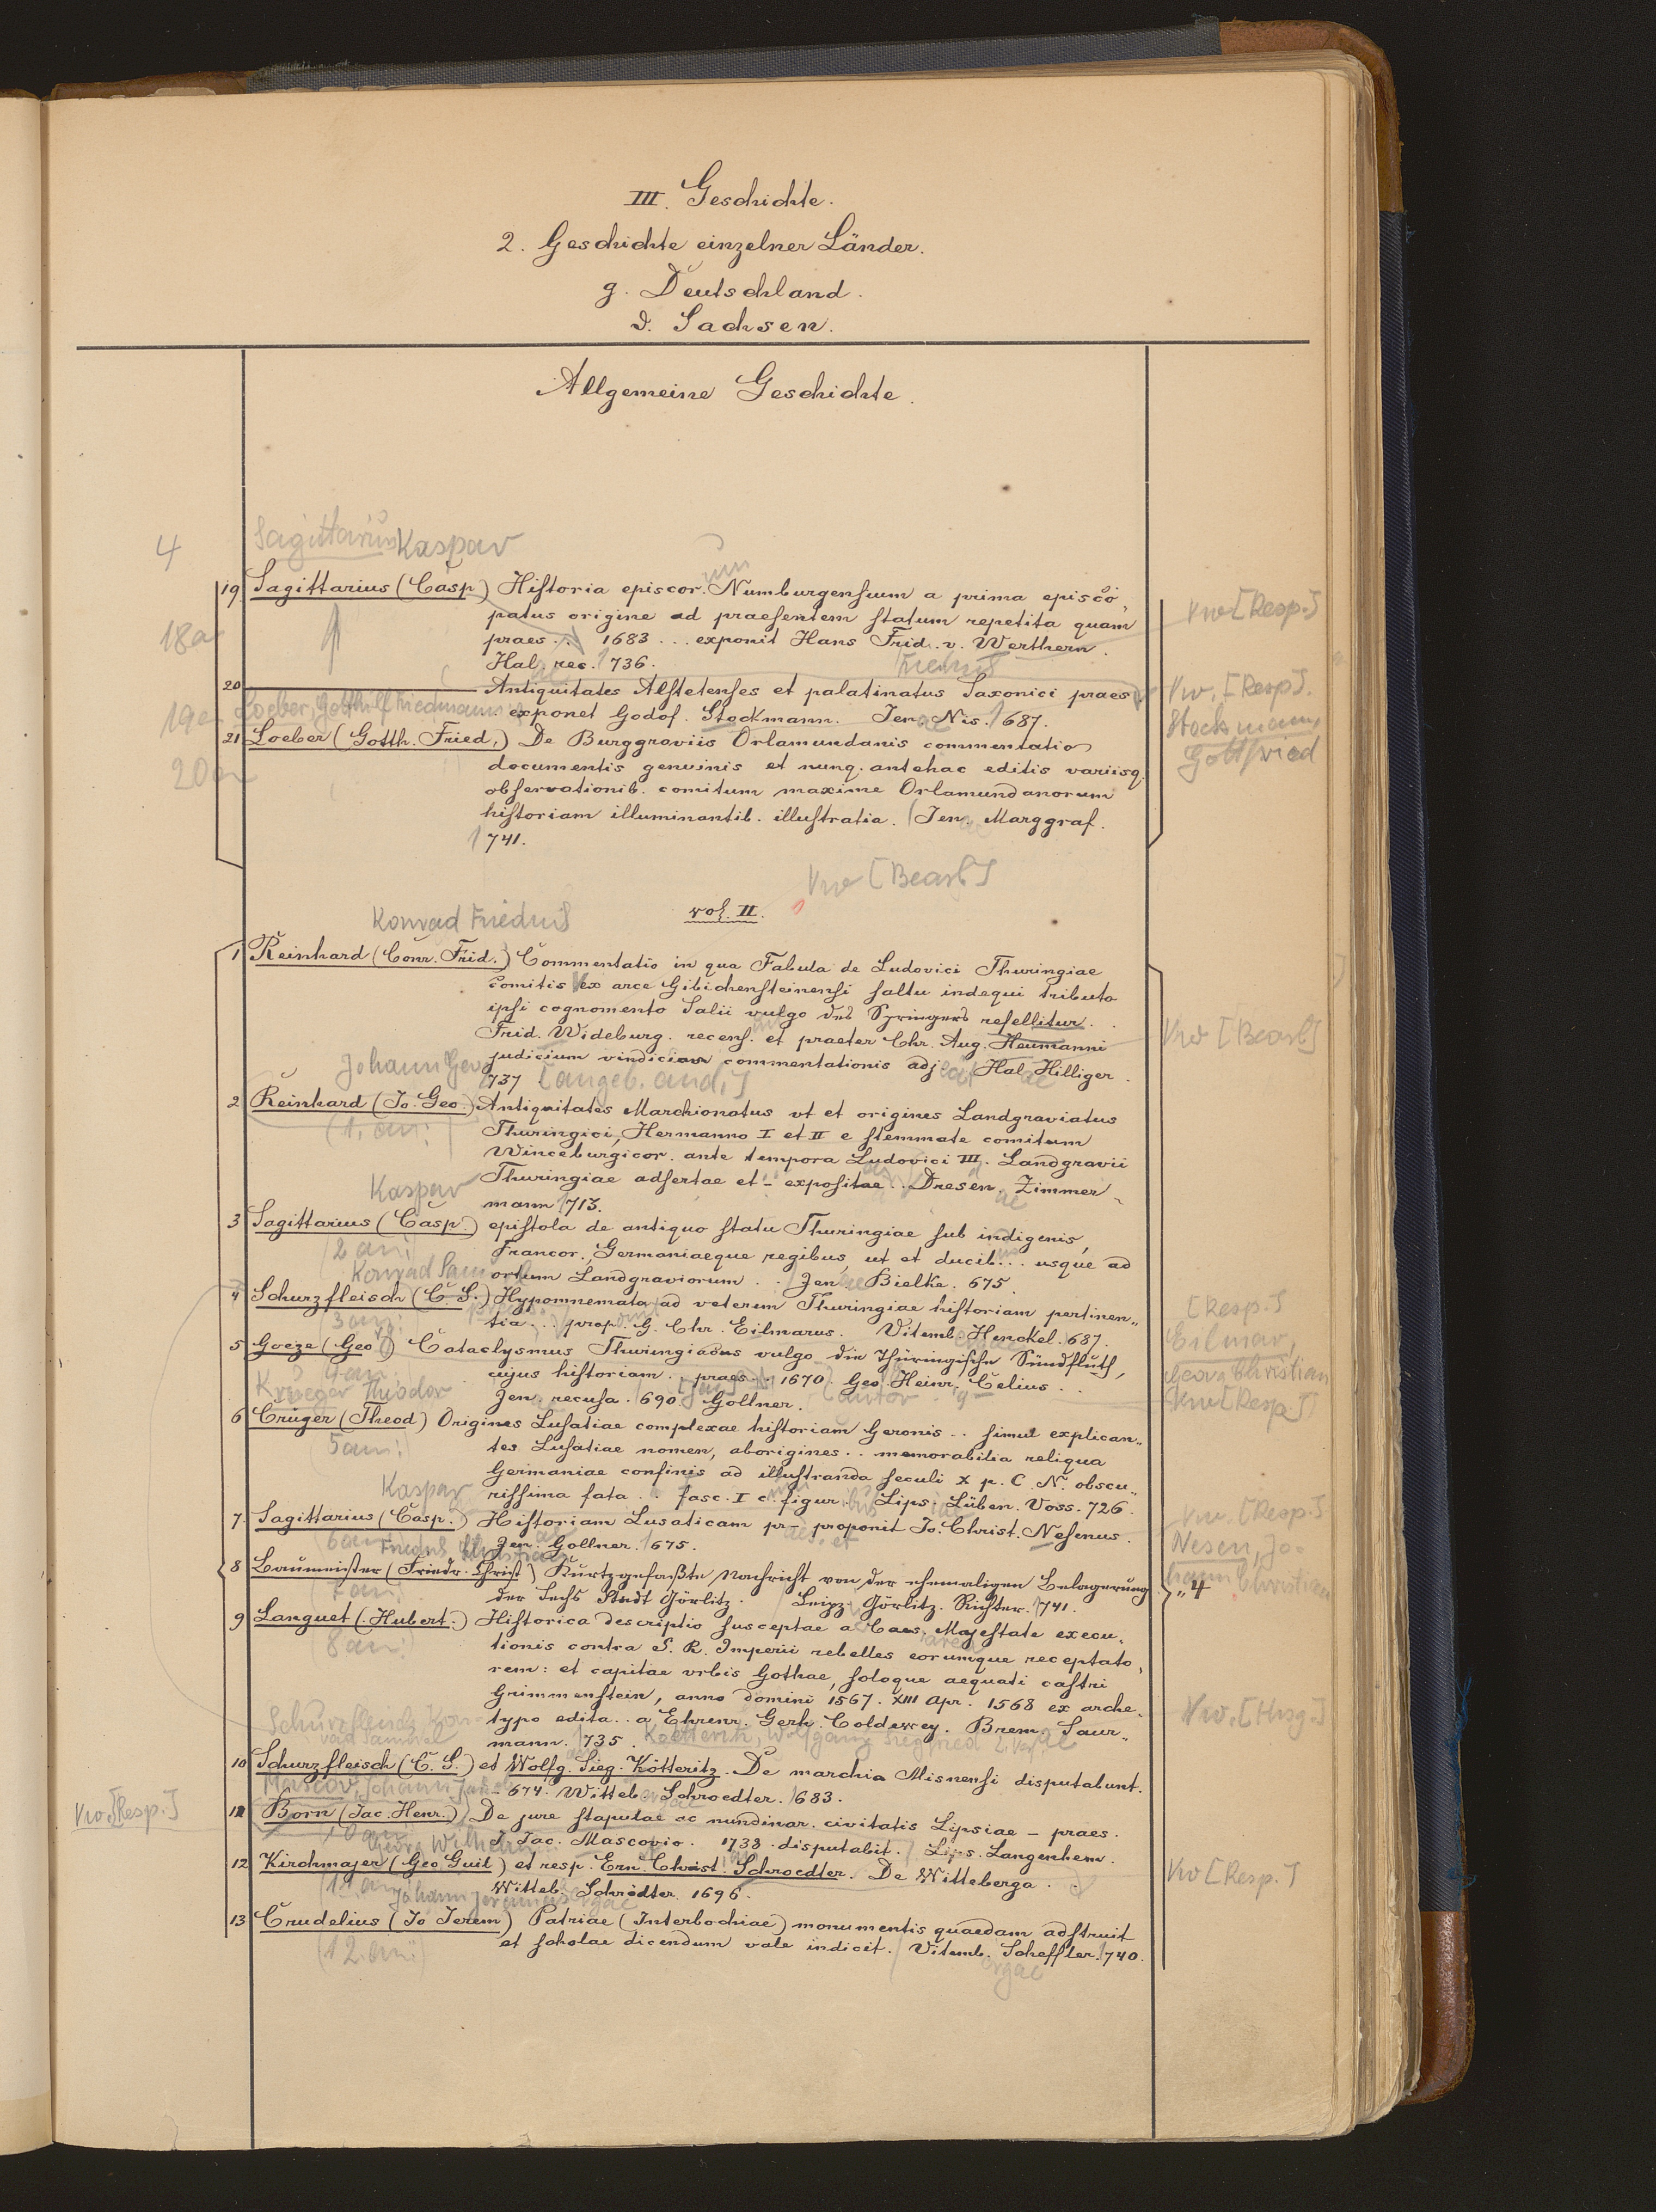 III. Geschichte.
2. Geschichte einzelner Länder.
g. Deutschland.
d. Sachsen.
Allgemeine Geschichte.
Sagittarius Kaspar
4
um
19 Sagittarius (Casp) Historia episcor. Numburgensium a prima episco-
Vw [Resp.]
patus origine ad praesentem statum repetita quam
18a
praes... 1683... exponit Hans Frid. v. Werthern.
Hal. rec. 1736.
20 Antiquitates Alstetenses et palatinatus Saxonici praes
Vw. [Resp].
Loeber, Gotthilf Friedemann
19a
exponet Godof. Stockmann. Jenae Nis. 1687.
Stockmann,
Gottfried
21 Loeber (Gotth. Fried.) De Burggraviis Orlamundanis commentatio
20a
documentis genuinis et nunq. antehac editis variisq.
observationib. comitum maxime Orlamundanorum
historiam illuminantib. illustratia. Jenae Marggraf.
1741.
Vw [Bearb]
vol. II.
Konrad Friedrich
1 Reinhard (Conr. Frid.) Commentatio in qua Fabula de Ludovici Thuringiae
comitis ex arce Gibichensteinensi saltu indequi tributo
ipsi cognomento Salii vulgo des Springers refellitur..
Vw [Bearb]
Frid. Wideburg. recens. et praeter Chr. Aug. Heumanni
judicium vindicias commentationis adj. Hal. Hilliger.
737 [angeb. and.]
Johann Georg
2 Reinhard (Jo. Geo.) Antiquitates Marchionatus vt et origines Landgraviatus
(1. an:)
Thuringici, Hermanno I et II e stemmate comitum
Winceburgicor. ante tempora Ludovici III. Landgravii
Thuringiae adsertae et - expositae.. Dresdae Zimmer-
mann 1713.
Kaspar
3 Sagittarius (Casp.) epistola de antiquo statu Thuringiae sub indigenis,
(2 an:)
Francor., Germaniaeque regibus, ut et ducib... usque ad
ortum Landgraviorum.. Jenae Bielke. 675.
Konrad Samuel
4 Schurzfleisch (C. S.) Hypomnemata ad veterum Thuringiae historiam pertinen„
[Resp.]
(3 an:)
tia... prop. G. Chr. Eilmarus. Vitemb. Henckel. 1687.
Eilmar,
Georg Christian
5 Goeze (Geo) Cataclysmus Thuringiacus vulgo die Thüringische Sündfluth,
(4 an:)
cujus historiam.. praes.. 1670. Geo Heinr. Celius..
Vw [Resp.]
Jenae recusa. 690 Gollner.
Krueger Theodor
6 Crüger (Theod) Origines Lusatiae complexae historiam Geronis.. simul explican„
(5 an:)
tes Lusatiae nomen, aborigines.. memorabilia reliqua
Germaniae confinis ad illustranda seculi X p. C. N. obscu„
rissima fata.. fasc. I c. figur. Lips. Lüben. Voss. 726.
Kaspar
7 Sagittarius (Casp.) Historiam Lusaticam pr- proponit Jo. Christ. Nesenus.
Vw. [Resp.]
(6 an:)
Jenae Gollner. 1675.
Nesen, Jo-
hann Christian
8 Baumeister (Friedr. Christ) Kurtzgefaßte Nachricht von der ehemaligen Belagerung
„4
(7 an:)
der Sechs Stadt Görlitz. Leipz. Görlitz. Richter. 1741.
9 Languet (Hubert.) Historica descriptio susceptae a Caes. Majestate execu„
(8 an:)
tionis contra S. R. Imperii rebelles eorumque receptato„
rem: et capitae vrbis Gothae, soloque aequati castri
Grimmenstein, anno domini 1567. XIII Apr. 1568 ex arche„
typo edita.. a Ehrenr. Gerh. Coldewey. Brem. Saur„
Vw. [Hrsg.]
mann. 1735.
Schurzfleisch, Kon-
rad Samuel
Koetteritz, Wolfgang Siegfried
10 Schurzfleisch (C. S.) et Wolfg. Sieg. Kötteritz. De marchia Misnensi disputabunt.
- 674. Witteb. Schroedter. 1683.
Mascov, Johann Jakob
Vw. [Resp.]
11 Born (Jac. Henr.) De jure stapulae ac nundinar. civitatis Lipsiae - praes.
(10 an:)
J. Jac. Mascovio. 1738. disputabit. Lips. Langenhem.
Georg Wilhelm
12 Kirchmajer (Geo Guil) et resp. Ern. Christ. Schroedter. De Witteberga..
Vw [Resp.]
(11 an:)
Witteb. Schrödter 1696.
Johann Jeremias
13 Crudelius (Jo Jerem) Patriae (Interbochiae) monumentis quaedam adstruit
(12. an:)
et scholae dicendum vale indicit. Vitemb. Scheffler. 1740.
ergae